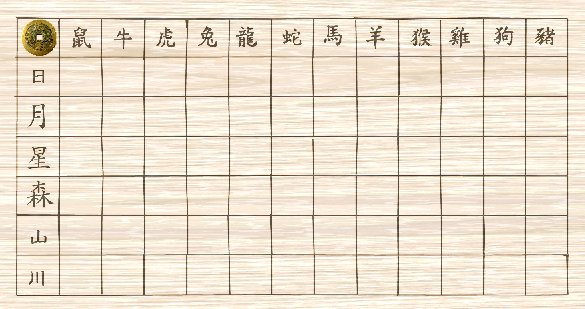 鼠 牛 虎 兔 龍 蛇 馬 羊 猴 雞 狗 豬
日
月
星
森
山
川